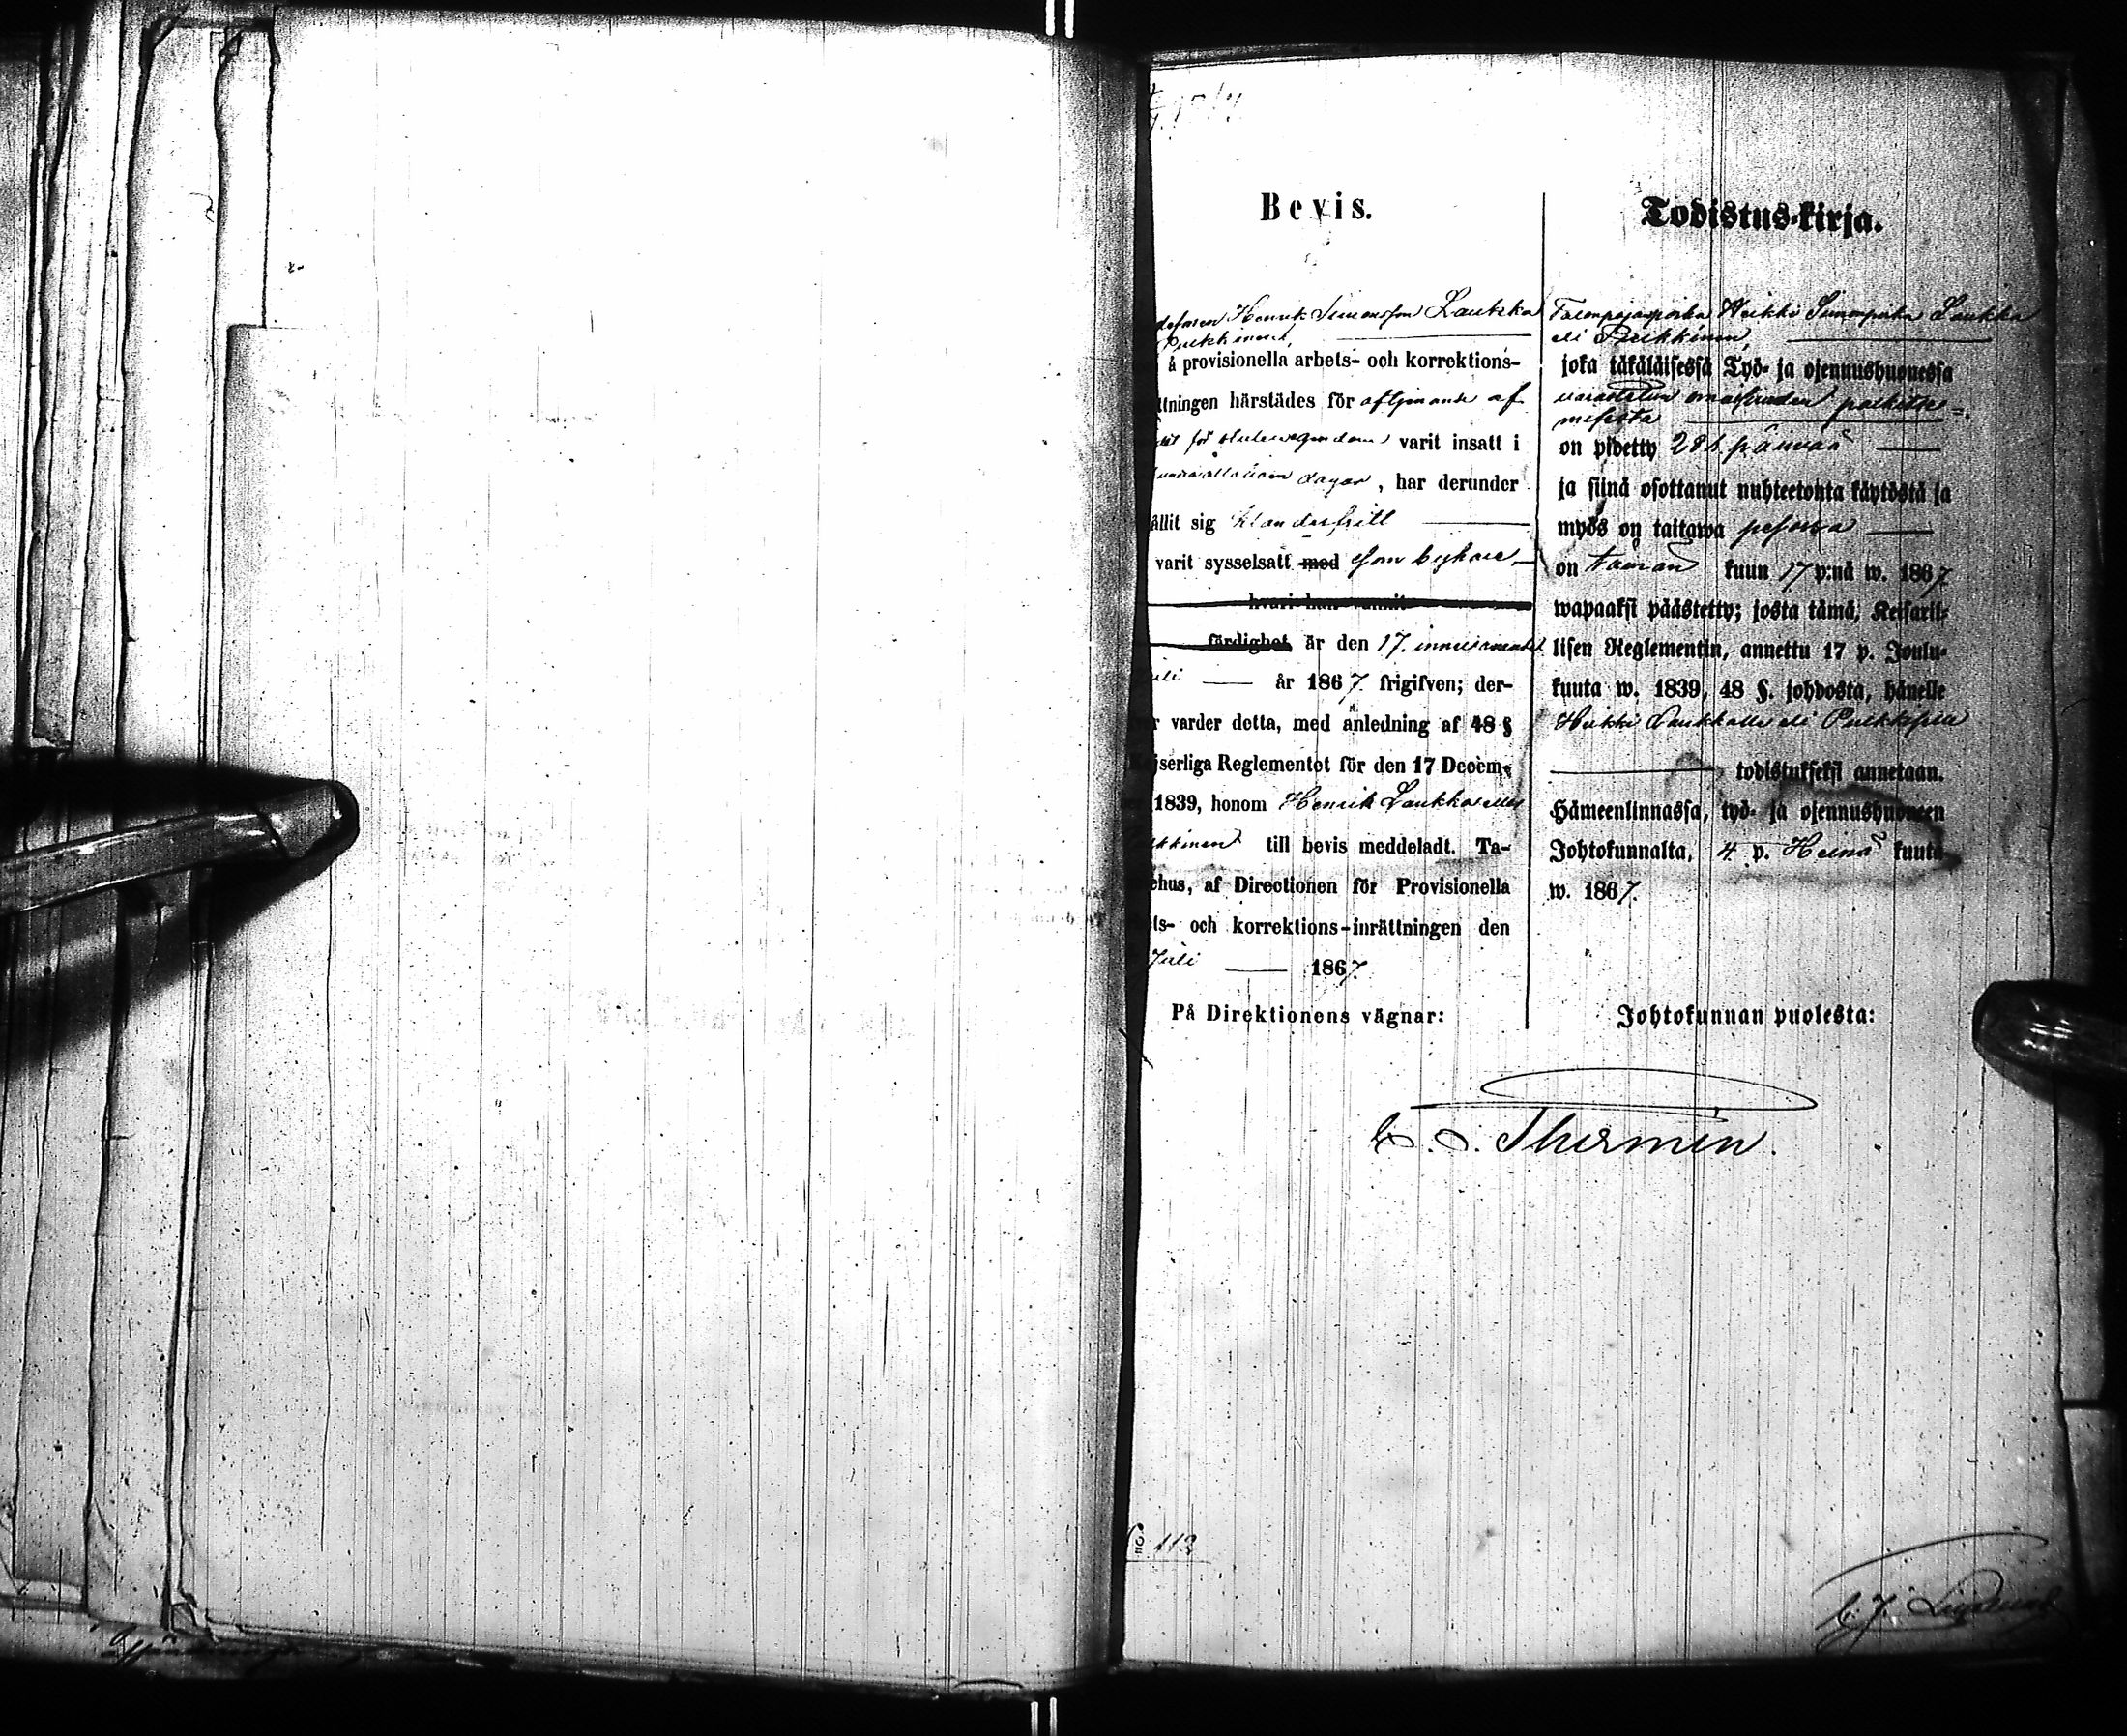 Bevis.
Henrik Simonsson Laukka
Pulkkinen,
å provisionella arbets- och korrektions-
ttningen härstädes för aftjenande af
för varit insatt i
dagar, har derunder
ållit sig klanderfritt
varit sysselsatt med som bykare
hvari han vunnit
färdighet är den 17. innevarande
uli år 1867 frigifven; der-
r varder detta, med anledning af 48 §
jserliga Reglementet för den 17 Decem-
1839, honom Henrik Laukka eller
kkinen till bevis meddeladt. Ta-
ehus, af Directionen för Provisionella
ts- och korrektions-inrättningen den
Juli 1867.
På Direktionens vägnar:
Todistus-kirja.
Talonpojanpoika Heikki Simonpoika Laukka
eli Pulkkinen,
joka täkäläisessä Työ- ja ojennushuonessa
varastetun omaisuuden
on pidetty 281 päivää
ja siinä osottanut nuhteetonta käytöstä ja
myös on taitawa pesossa
on tämän kuun 17 p:nä w. 1867
wapaaksi päästetty; josta tämä, Keisaril-
lisen Reglementin, annettu 17 p. Joulu-
kuuta w. 1839, 48 §. johdosta, hänelle
Heikki Laukkalle eli Pulkkis
todistukseksi annetaan.
Hämeenlinnassa, työ- ja ojennushuoneen
Johtokunnalta, 4 p. Heinä kuuta
w. 1867.
Johtokunnan puolesta:
Thermén.
112